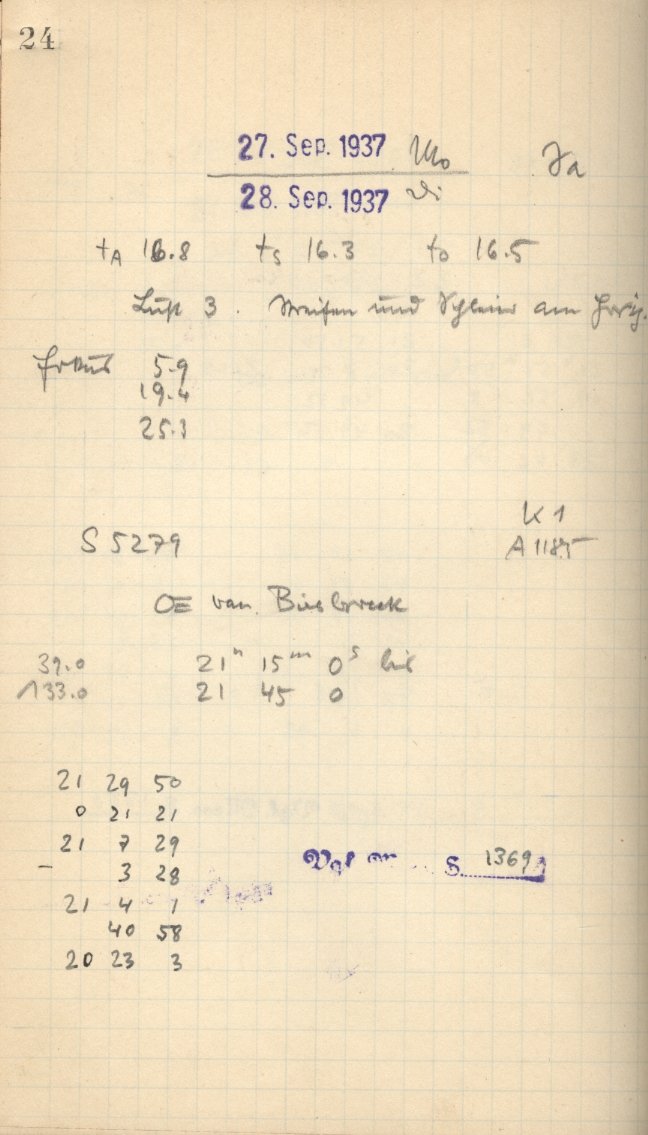 24
27. Sep. 1937 Mo Ja
28. Sep. 1937 Di
tA 16.8 tS 16.3 tO 16.5
Luft 3. Streifen und Schleier am Horiz.
Fokus 5.9
19.4
25.3
K 1
S 5279 A 1185
van Biesbroeck
39.0 21h 15m 0s bis
133.0 21 45 0
21 29 50
0 21 21
21 7 29
- 3 28
21 4 1
40 58
20 23 3
S. 1369